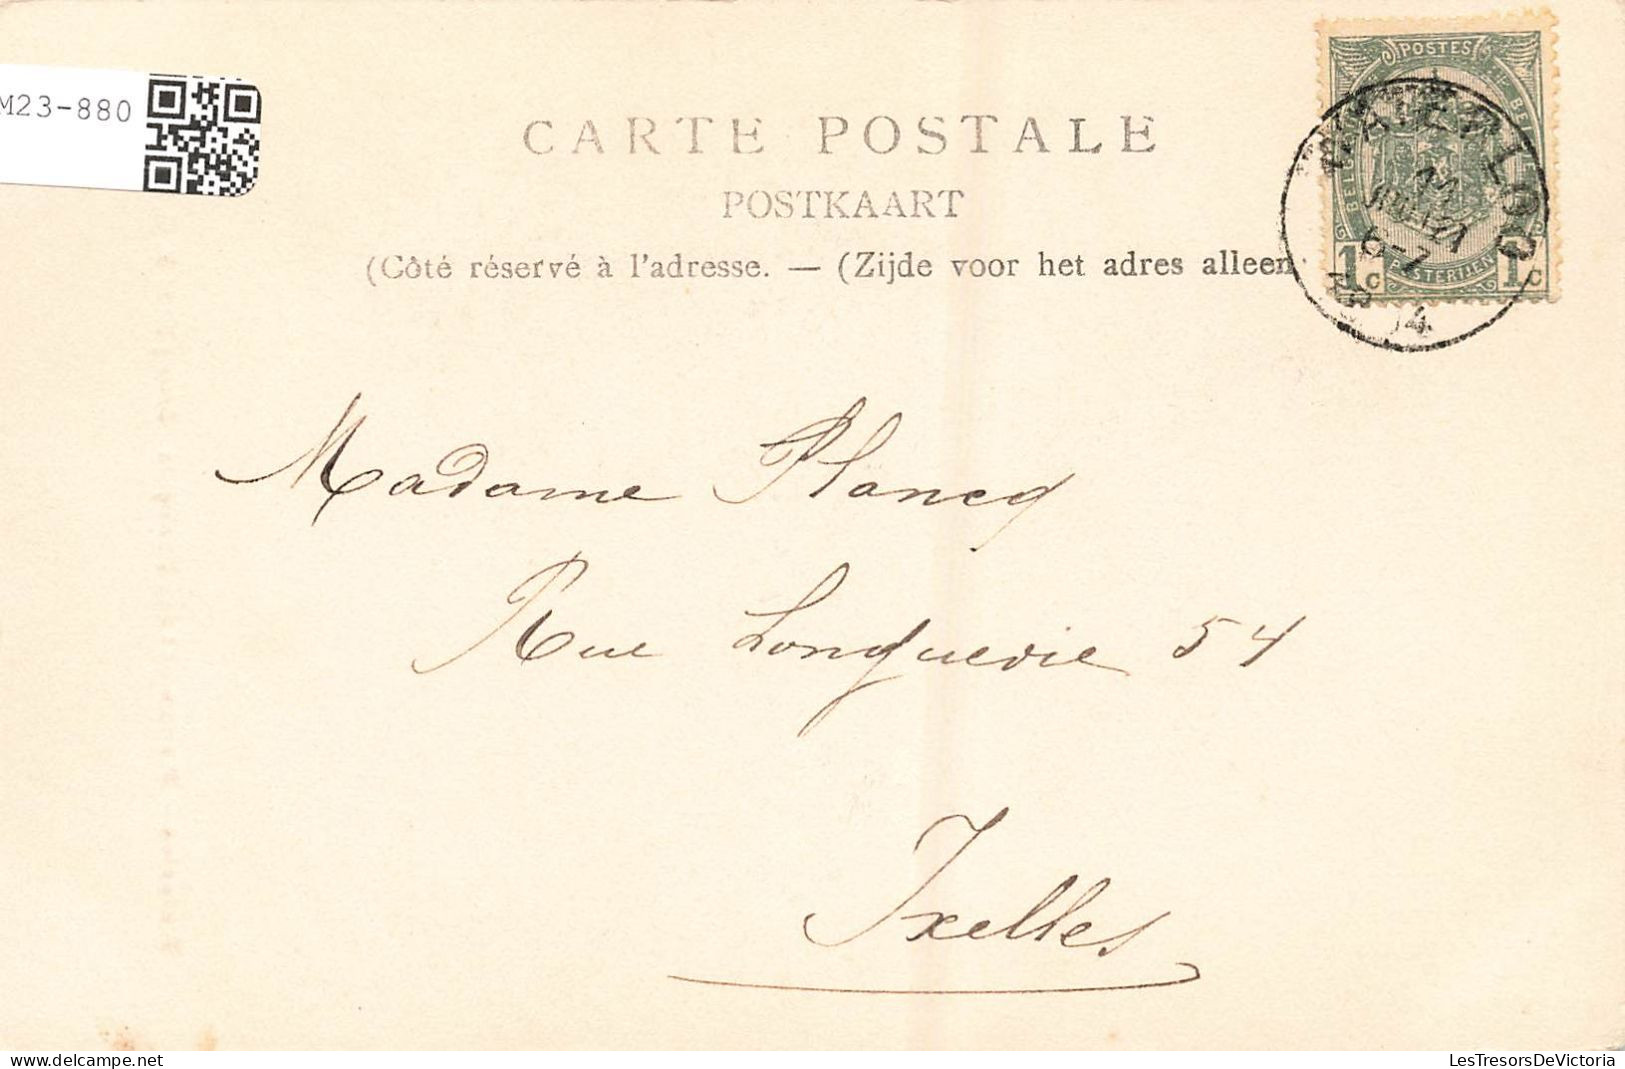 M23-880
CARTE POSTALE
POSTKAART
(Côté réservé à l'adresse. — (Zijde voor het adres alleen
POSTES
1c POSTERIJEN 1c
WATERLOO
Madame Plancq
Rue Longuevie 54
Ixelles
LesTresorsDeVictoria